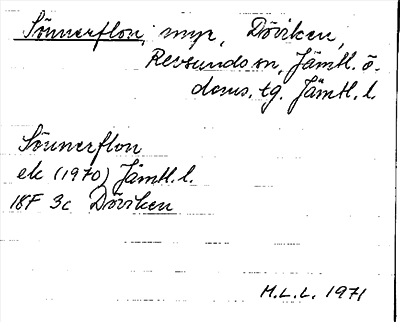 Sönnerflon, myr, Döviken,
Revsunds sn, Jämtl. ö.
doms. tg. Jämtl. l.
Sönnerflon
ek (1970) Jämtl. l.
18F 3c Döviken
M.L.L. 1971